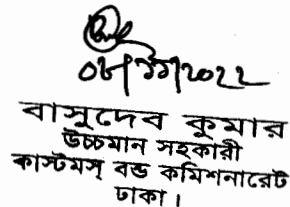 ০৮/১১/২০২২
বাসুদেব কুমার
উচ্চমান সহকারী
কাস্টমস্ বন্ড কমিশনারেট
ঢাকা।